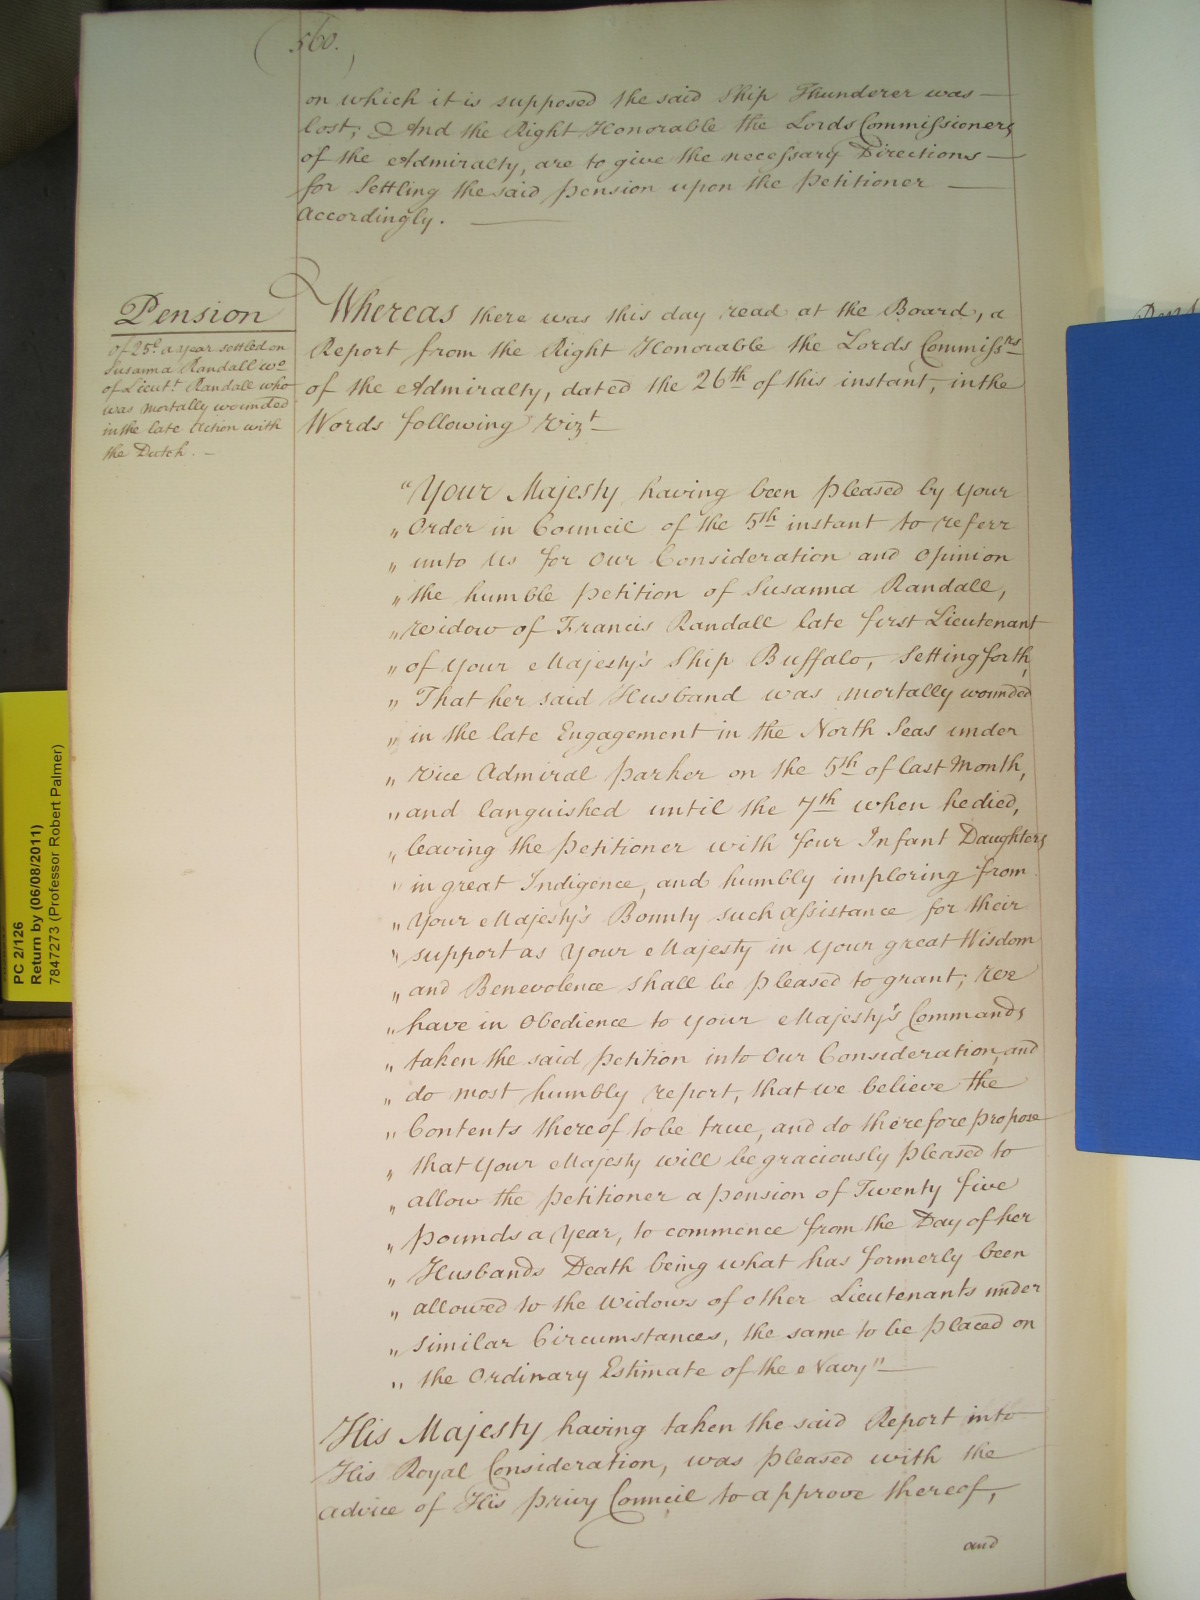 (560.)
on which it is supposed the said Ship Thunderer was —
lost; And the Right Honorable the Lords Commissioners
of the Admiralty, are to give the necessary Directions —
for Settling the said pension upon the Petitioner —
Accordingly. —
Pension
of 25£ a year settled on
Susanna Randall wo
of Lieutt Randall who
was mortally wounded
in the late Action with
the Dutch. —
Whereas there was this day read at the Board, a
Report from the Right Honorable the Lords Commissrs
of the Admiralty, dated the 26th of this instant, in the
Words following vizt —
"Your Majesty having been pleased by Your
"Order in Council of the 5th instant to referr
"unto Us for Our Consideration and Opinion
"the humble petition of Susanna Randall,
"Widow of Francis Randall late first Lieutenant
"of Your Majesty's Ship Buffalo, Setting forth,
"That her said Husband was mortally wounded
"in the late Engagement in the North Seas under
"Vice Admiral Parker on the 5th of last Month,
"and languished until the 7th when he died,
"leaving the Petitioner with four Infant Daughters
"in great Indigence, and humbly imploring from
"Your Majesty's Bounty such Assistance for their
"support as Your Majesty in Your great Wisdom
"and Benevolence shall be pleased to grant; We
"have in Obedience to Your Majesty's Commands
"taken the said Petition into Our Consideration, and
"do most humbly report, that we believe the
"Contents thereof to be true, and do therefore propose
"that Your Majesty will be graciously pleased to
"allow the petitioner a pension of Twenty five
"pounds a Year, to commence from the Day of her
"Husbands Death being what has formerly been
"allowed to the Widows of other Lieutenants under
"similar Circumstances, the same to be placed on
"the Ordinary Estimate of the Navy" —
His Majesty having taken the said Report into
His Royal Consideration, was pleased with the
advice of His Privy Council to approve thereof,
and
PC 2/126
Return by (06/08/2011)
7847273 (Professor Robert Palmer)